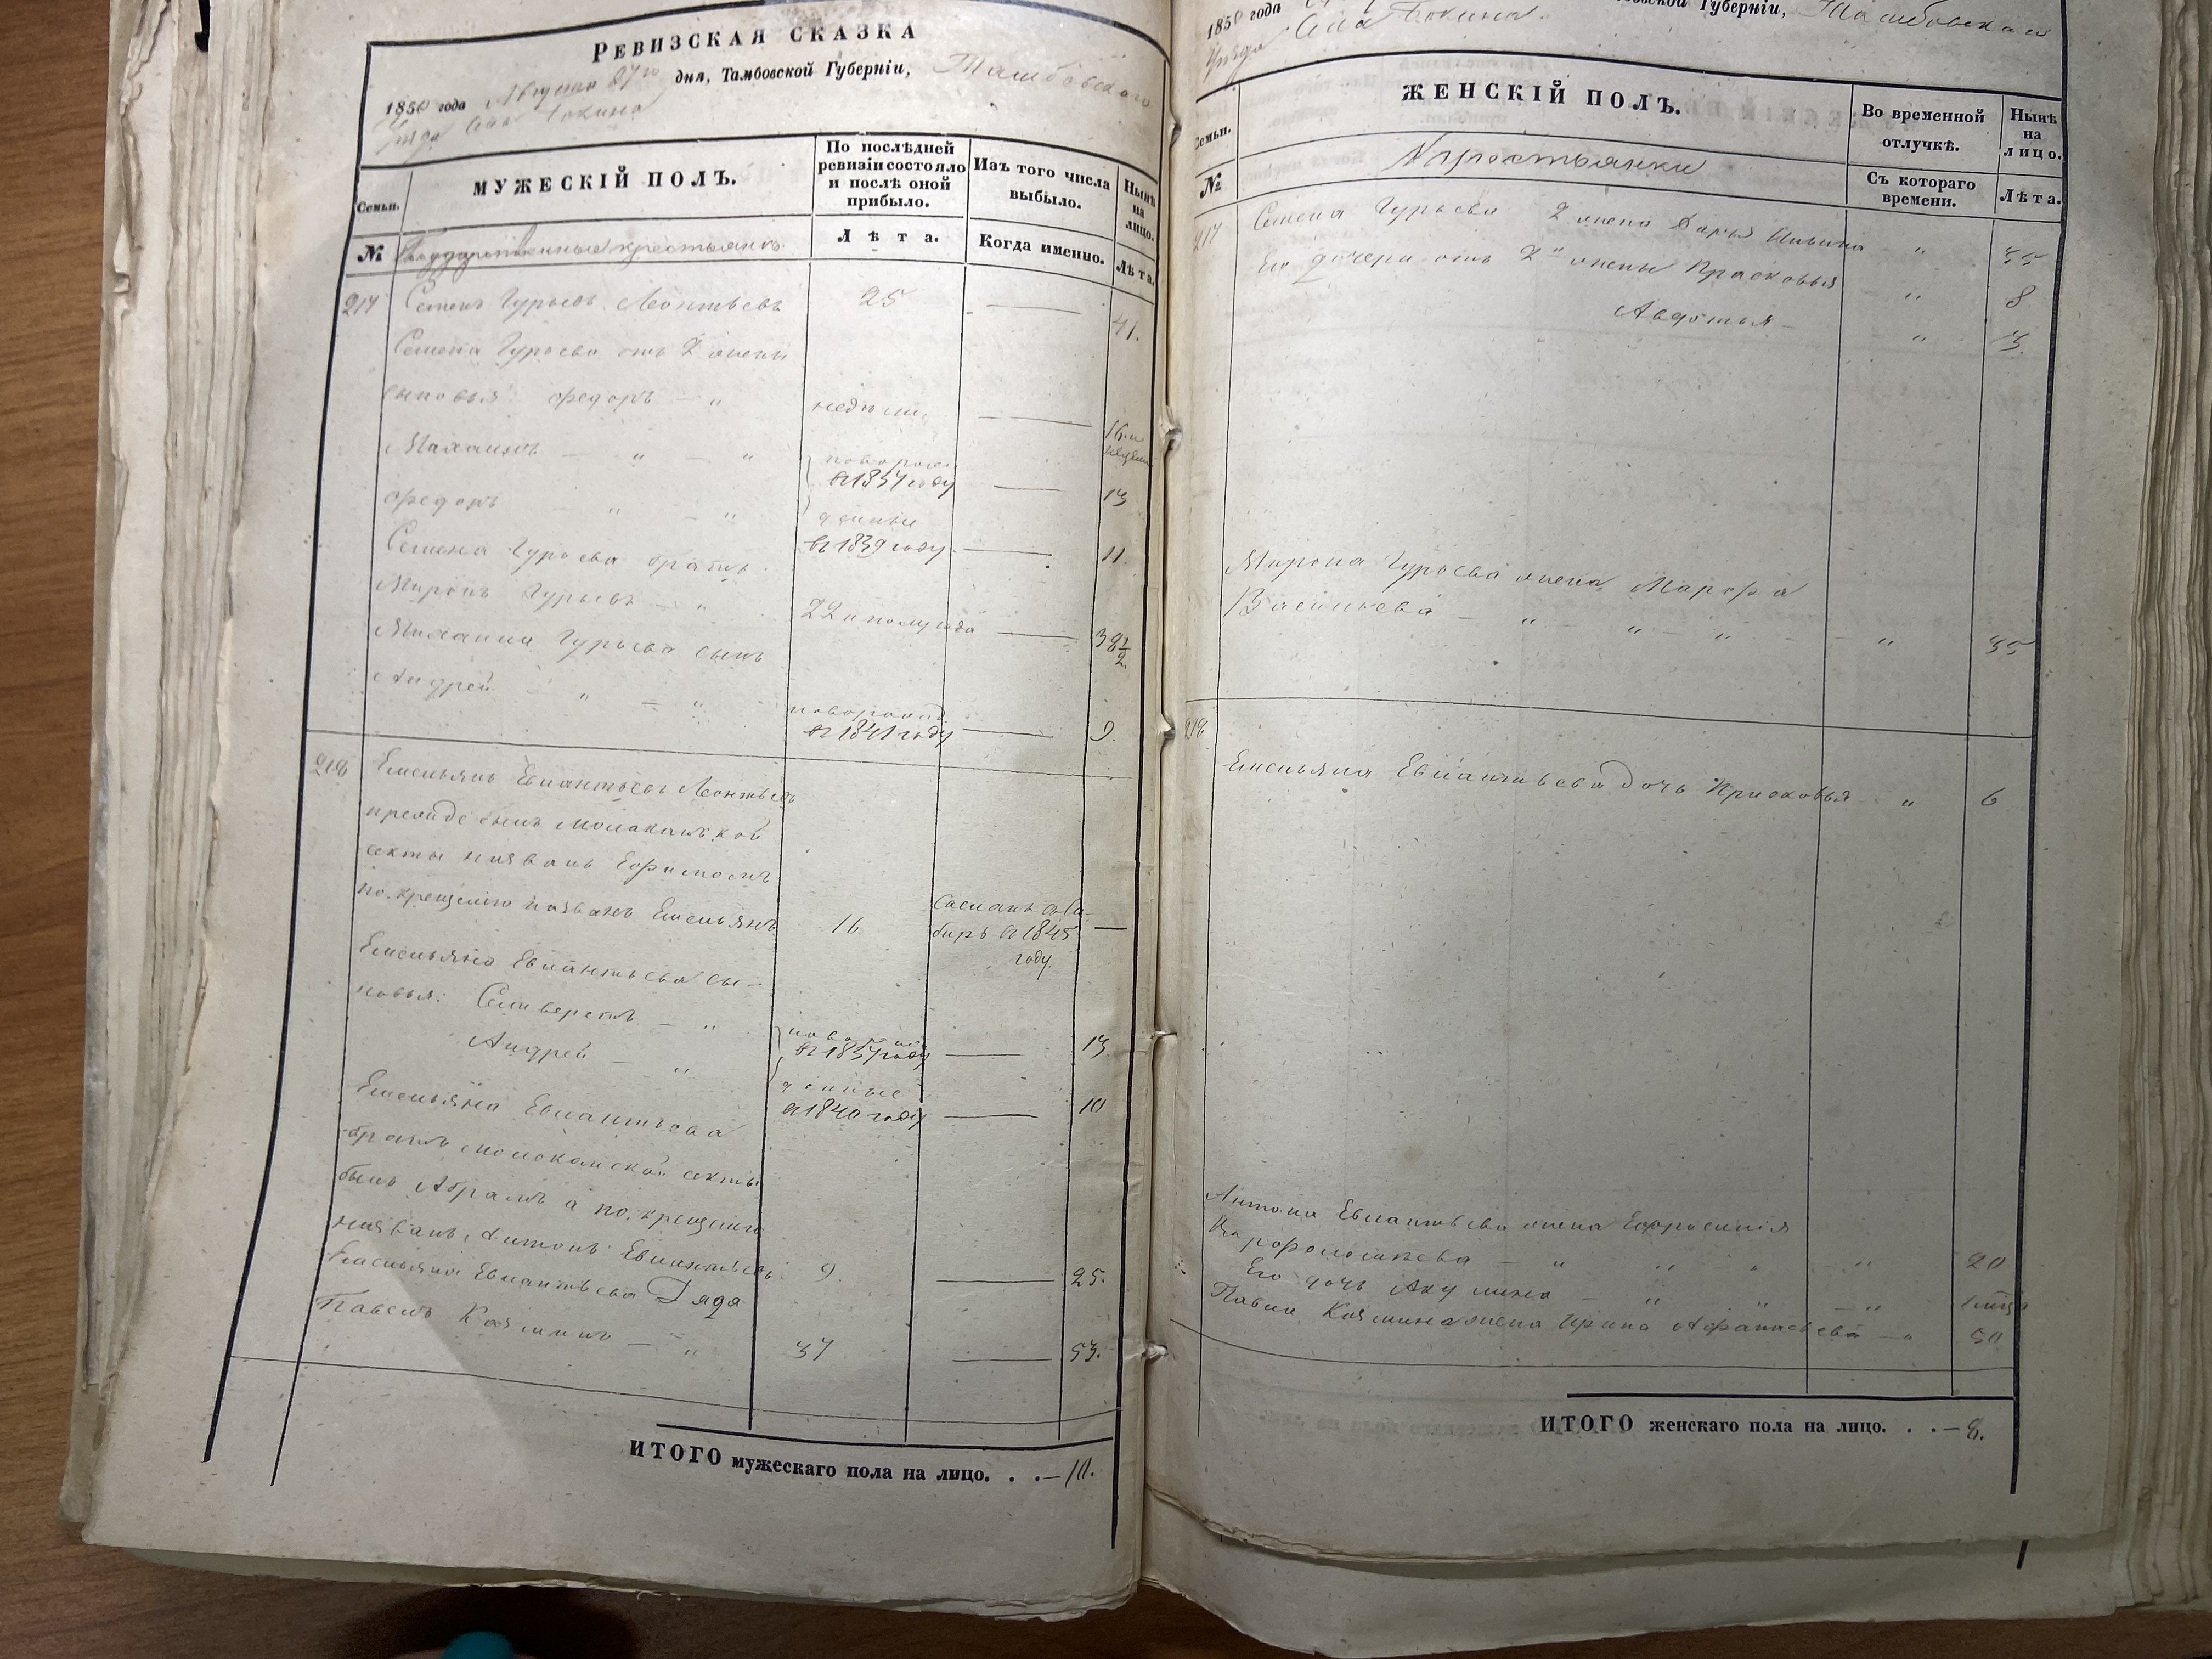 Ревизская сказка
1850 года Августа 27го дня, Тамбовской Губерніи, Тамбовскаго
Уѣзда Села Бокина
МУЖЕСКІЙ ПОЛЪ.
По послѣдней ревизіи состояло и послѣ оной прибыло.
Изъ того числа выбыло.
Нынѣ на лицо.
Семьи.
№
Государственные крестьяне
Лѣта.
Когда именно.
Лѣта.
217 Семенъ Гурьевъ Леонтьевъ 25 — 41.
Семена Гурьева отъ 2 жены
сыновья Федоръ — " недѣли — 16.и недѣли
Михаилъ — " — " новорож в 1837 году — 13
Федоръ — " — " денные в 1839 году — 11.
Семена Гурьева братъ
Миронъ Гурьевъ — " 22 и полугода — 38 1/2.
Михаила Гурьева сынъ
Андрей — " — " новорожд в 1841 году — 9.
218 Емельянъ Евлантьевъ Леонтьевъ
прежде былъ молаканской
секты названъ Ефимомъ
по крещенію названъ Емельянъ 16 Сосланъ в Сибирь в 1845 году. —
Емельяна Евлантьева сы-
новья: Селиверстъ — " новорож в 1837 году — 13
Андрей — " денные в 1840 году — 10
Емельяна Евлантьева
братъ молоканской секты
былъ Абрамъ а по крещенію
названъ Антонъ Евлантьевъ 9. — 25.
Емельяна Евлантьева Дядя
Павелъ Козминъ — " 37 — 53.
ИТОГО мужескаго пола на лицо. . .— 10.
1850 года Губерніи, Тамбовскаго
Уѣзда Села Бокина.
ЖЕНСКІЙ ПОЛЪ.
Во временной отлучкѣ.
Нынѣ на лицо.
Семьи.
№
Крестьянки
Съ котораго времени.
Лѣта.
217 Семена Гурьева 2 жена Дарья Ильина " 35
Его дочери отъ 2й жены Прасковья " 8
Авдотья — " 3
Мирона Гурьева жена Марфа
Васильева — " — " — " — " 35
218
Емельяна Евлантьева дочь Прасковья " 6
Антона Евлантьева жена Ефросинія
— " " " — " 20
Его дочь Акулина — " " — "
Павла Козмина жена Ирина Афанасьева — " 50
ИТОГО женскаго пола на лицо. . .— 8.